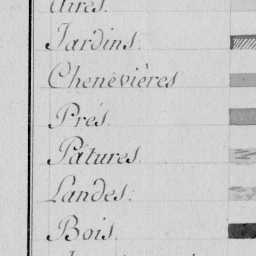 Aires.
Jardins.
Chenevières
Prés.
Pâtures.
Landes.
Bois.